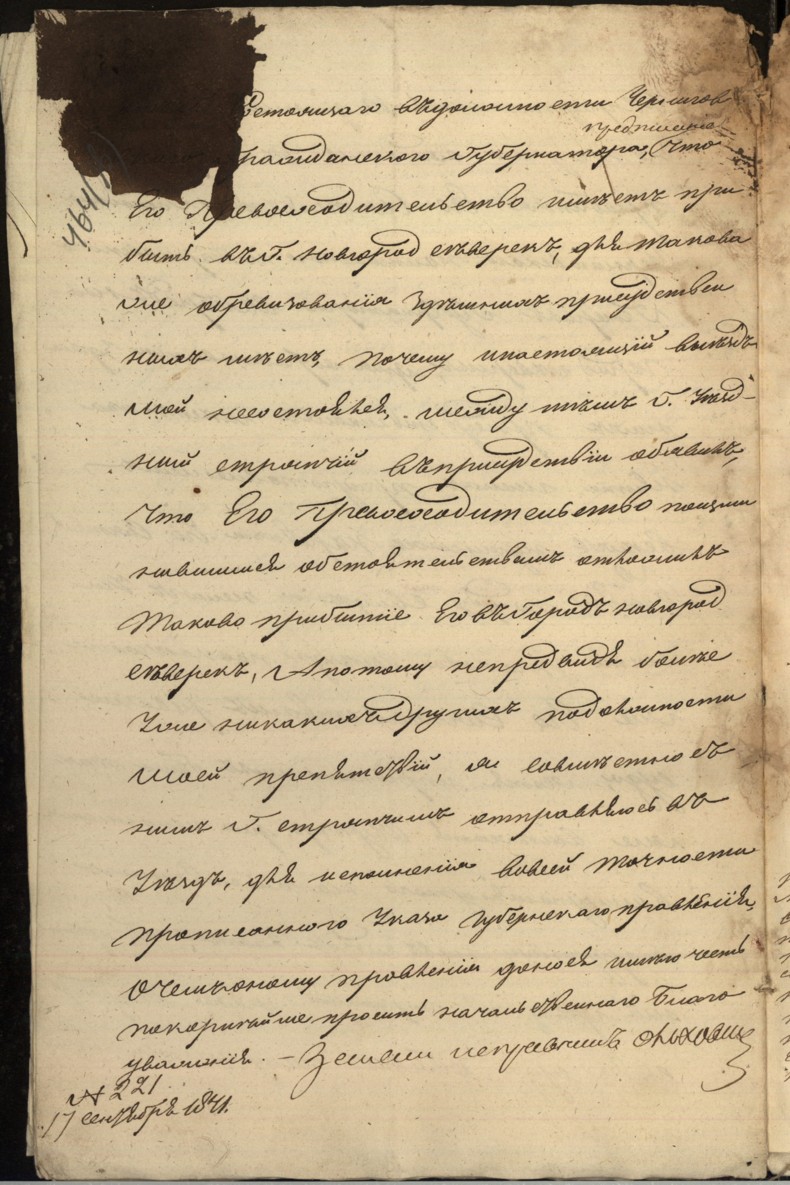 стоящаго въдомости Чернигов
предписано
Гражданского Губернатора, что
Его Превосходительство имѣетъ при
464
быть въ Г. Новгород сѣверскъ, для такова
же обревизования здѣшнихъ присудствен
ныхъ мѣстъ, почему инастоящій выѣздъ
мой несостоялся, между тѣмъ Г. Уѣзд-
ный стряпчій въприсудствіи объявилъ,
что Его Превосходительство поизме
нившимся обстоятельствамъ отложилъ
таково прибытие Его въ Городъ Новгород
сѣверскъ, Апотому непредвидя болѣе
уже никакихъ другихъ подолжности
моей препятствій, я совмѣстно съ
нимъ Г. стряпчимъ отправляюсь въ
Уѣздъ, для исполнения вовсей точности
прописанного Указа Губернскаго правления,
Очемъ оному правления донося имѣю честь
покорнѣйше просить начальственнаго Благо
уважения. – Земски исправникъ
№ 221
17 сентября 1841.